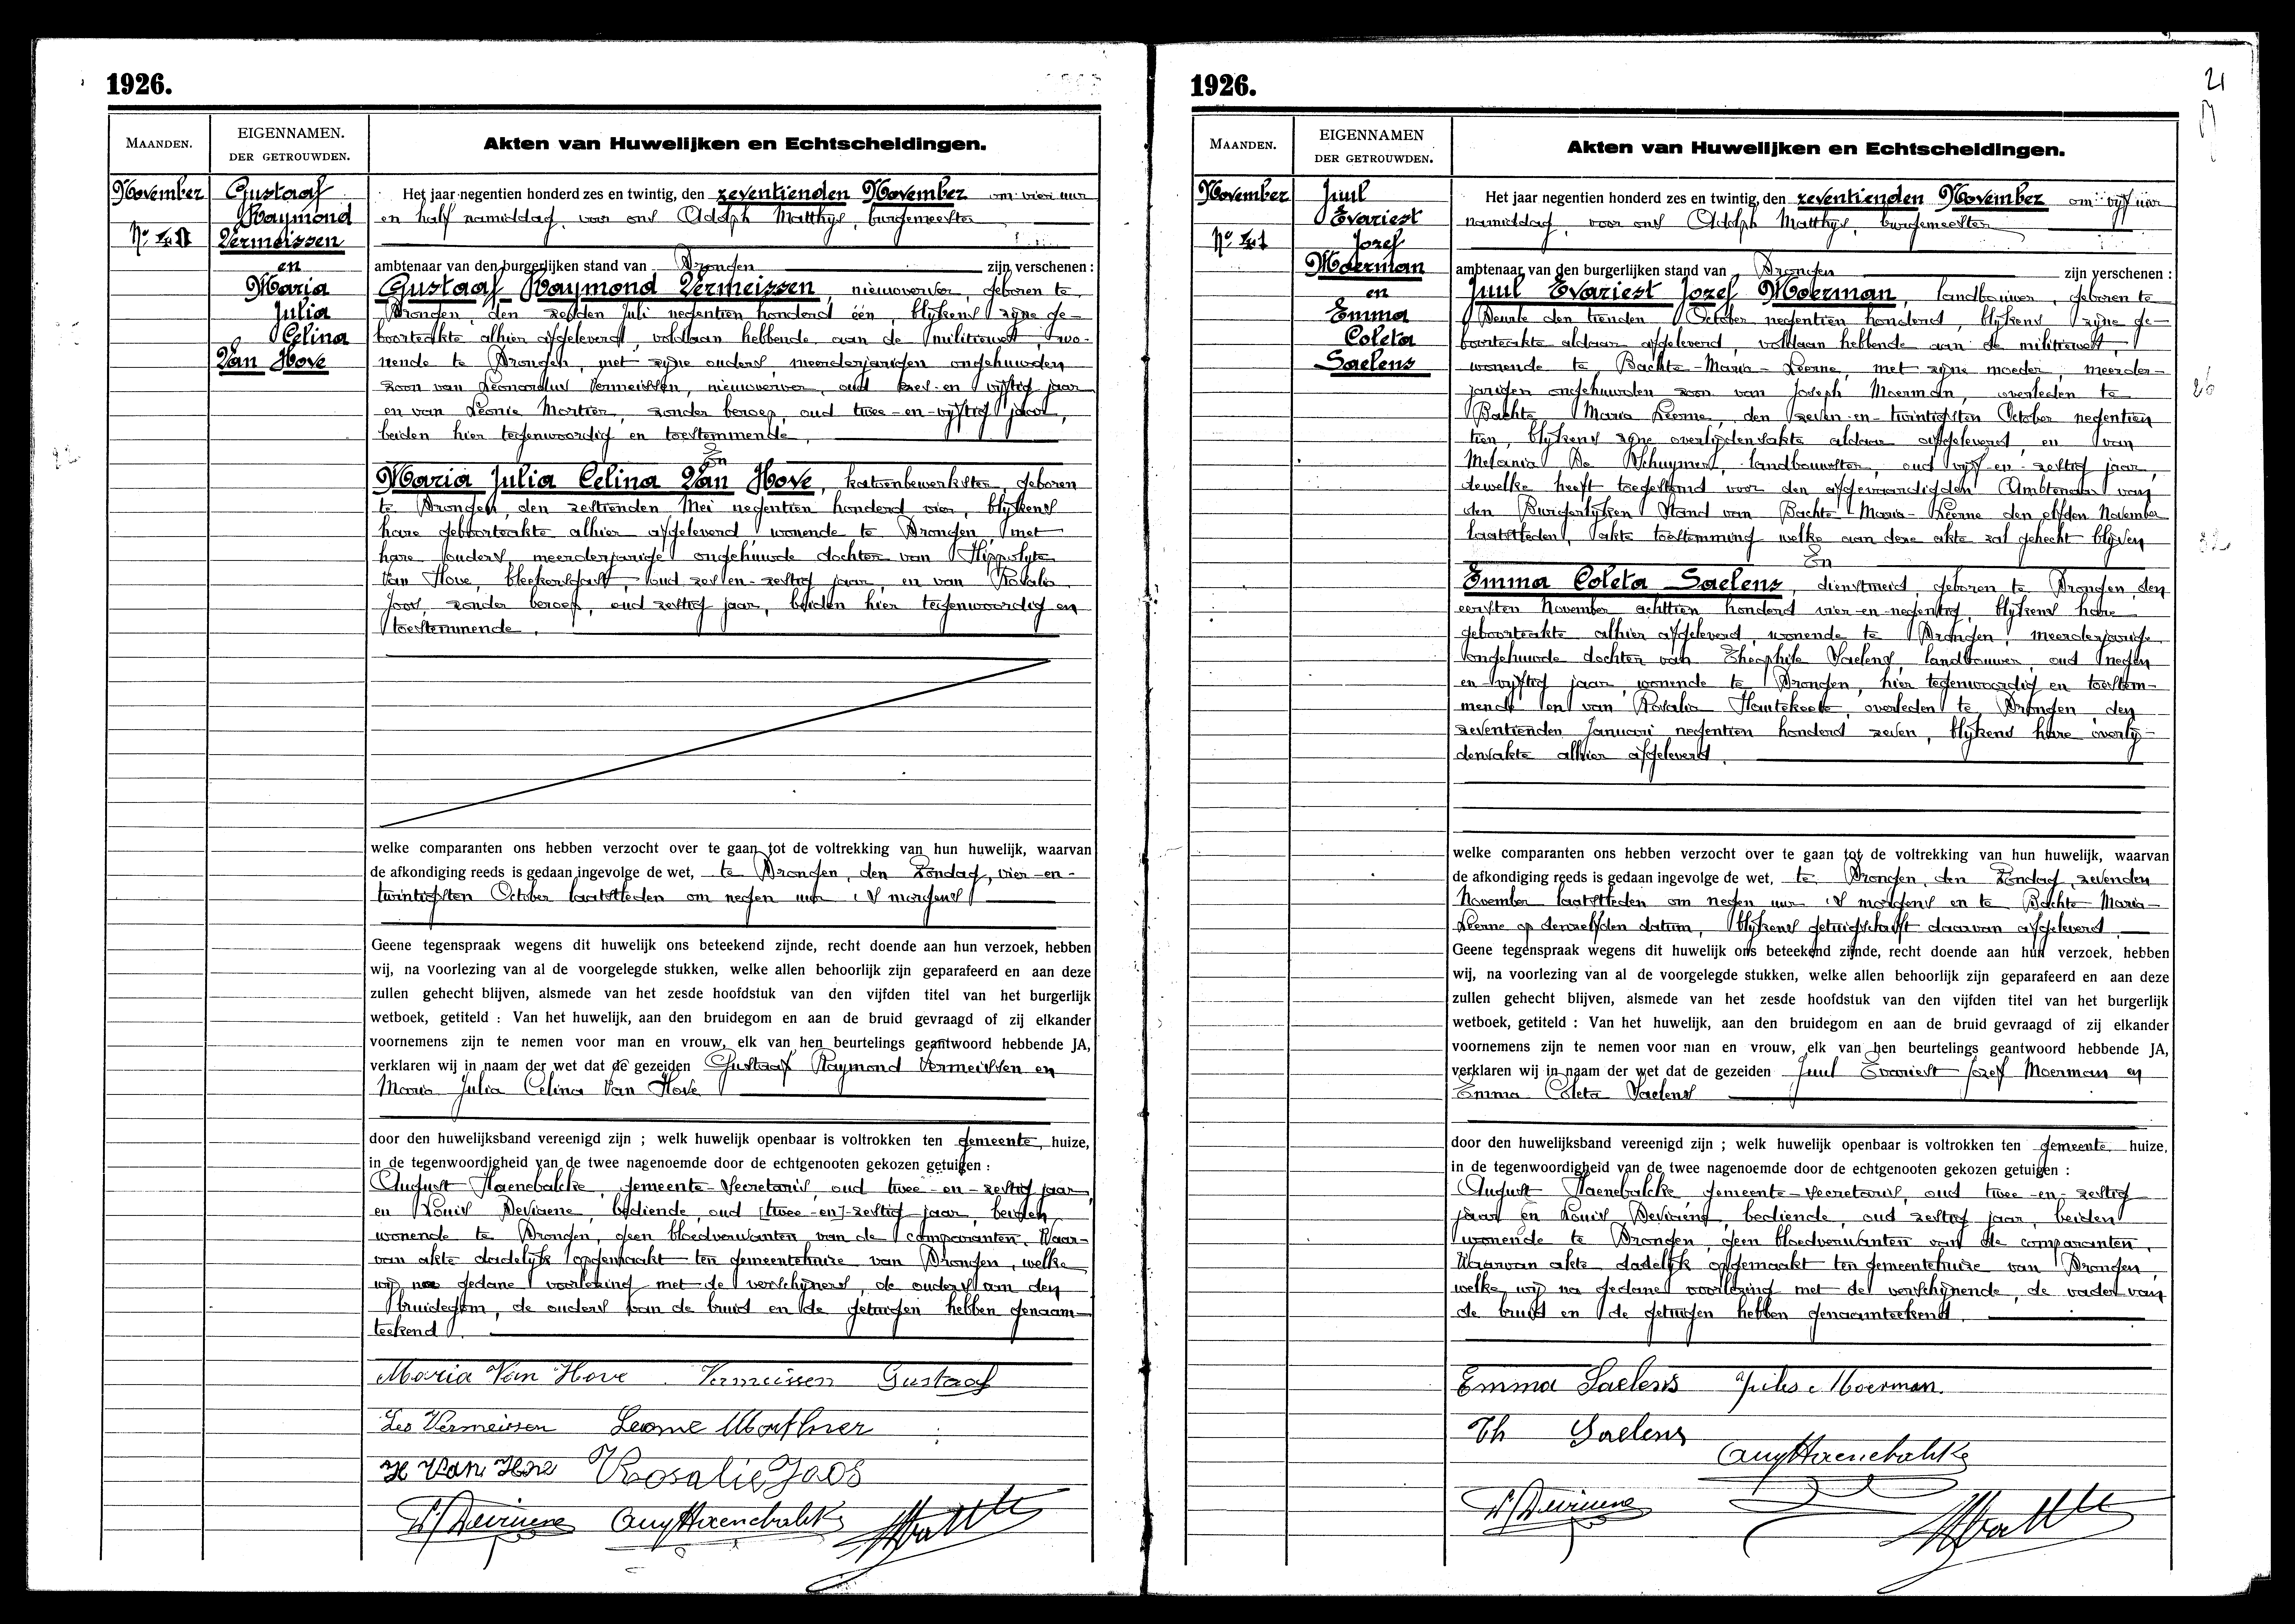 1926.
MAANDEN.
EIGENNAMEN.
DER GETROUWDEN.
Akten van Huwelijken en Echtscheidingen.
November
Gustaaf
Raymond
Vermeissen
en
Maria
Julia
Celina
Van Hove
Het jaar negentien honderd zes en twintig, den zeventienden November om vier uur
en half namiddag, voor ons Adolph Matthys, burgemeester
ambtenaar van den burgerlijken stand van Drongen zijn verschenen :
Gustaaf Raymond Vermeissen, nieuwverver, geboren te
Drongen, den zesden Juli negentien honderd één, blijkens zijne ge-
boorteakte alhier afgeleverd, voldaan hebbende aan de militiewet, wo-
nende te Drongen, met zijne ouders, meerderjarigen ongehuwden
zoon van Leonardus Vermeissen, nieuwverver, oud en vijftig jaar
en van Leonie Mortier, zonder beroep, oud twee-en-vijftig jaar,
beiden hier tegenwoordig en toestemmende.
En
Maria Julia Celina Van Hove, katoenbewerkster, geboren
te Drongen, den zestienden Mei negentien honderd vier, blijkens
hare geboorteakte alhier afgeleverd, wonende te Drongen, met
hare ouders, meerderjarige ongehuwde dochter van Hippolyte
Van Hove, bleekersgast, oud zes-en-zestig jaar, en van Rosalie
Joos, zonder beroep, oud zestig jaar, beiden hier tegenwoordig en
toestemmende.
welke comparanten ons hebben verzocht over te gaan tot de voltrekking van hun huwelijk, waarvan
de afkondiging reeds is gedaan ingevolge de wet, te Drongen, den Zondag, vier-en-
twintigsten October laatstleden om negen uur 's morgens
Geene tegenspraak wegens dit huwelijk ons beteekend zijnde, recht doende aan hun verzoek, hebben
wij, na voorlezing van al de voorgelegde stukken, welke allen behoorlijk zijn geparafeerd en aan deze
zullen gehecht blijven, alsmede van het zesde hoofdstuk van den vijfden titel van het burgerlijk
wetboek, getiteld : Van het huwelijk, aan den bruidegom en aan de bruid gevraagd of zij elkander
voornemens zijn te nemen voor man en vrouw, elk van hen beurtelings geantwoord hebbende JA,
verklaren wij in naam der wet dat de gezeiden Gustaaf Raymond Vermeissen en
Maria Julia Celina Van Hove
door den huwelijksband vereenigd zijn ; welk huwelijk openbaar is voltrokken ten gemeente huize,
in de tegenwoordigheid van de twee nagenoemde door de echtgenooten gekozen getuigen :
August Haenebalcke, gemeente-secretaris, oud twee-en-zestig jaar
en Louis Deviaene, bediende, oud [twee-en]-zestig jaar, beiden
wonende te Drongen, geen bloedverwanten van de comparanten. Waar-
van akte dadelijk opgemaakt ten gemeentehuize van Drongen, welke
wij na gedane voorlezing met de verschijners, de ouders van den
bruidegom, de ouders van de bruid en de getuigen hebben genaam-
teekend.
Maria Van Hove Vermeissen Gustaaf
Leo Vermeissen Leonie Morthier
H Van Hove Rosalie Joos
L. Deviaene Aug Haenebalcke
1926.
21
MAANDEN.
EIGENNAMEN
DER GETROUWDEN.
Akten van Huwelijken en Echtscheidingen.
November
Juul
Evariest
Jozef
Moerman
en
Emma
Coleta
Saelens
Het jaar negentien honderd zes en twintig, den zeventienden November om vijf uur
namiddag, voor ons Adolph Matthys, burgemeester
ambtenaar van den burgerlijken stand van Drongen zijn verschenen :
Juul Evariest Jozef Moerman, landbouwer, geboren te
Deurle den tienden October negentien honderd, blijkens zijne ge-
boorteakte aldaar afgeleverd, voldaan hebbende aan de militiewet,
wonende te Bachte-Maria-Leerne, met zijne moeder, meerder-
jarigen ongehuwden zoon van Joseph Moerman, overleden te
Bachte Maria Leerne, den zeven-en-twintigsten October negentien
tien, blijkens zijne overlijdensakte aldaar afgeleverd, en van
Melania De Schuymer, landbouwster, oud vijf-en-zestig jaar,
dewelke heeft toegestemd voor den afgevaardigden Ambtenaar van
den Burgerlijken Stand van Bachte-Maria-Leerne den elfden November
laatstleden, akte toestemming welke aan deze akte zal gehecht blijven
En
Emma Coleta Saelens, dienstmeid, geboren te Drongen, den
eersten November achttien honderd vier-en-negentig, blijkens hare
geboorteakte alhier afgeleverd, wonende te Drongen, meerderjarige
ongehuwde dochter van Theophile Saelens, landbouwer, oud negen
en vijftig jaar, wonende te Drongen, hier tegenwoordig en toestem-
mende en van Rosalia Hautekeete, overleden te Drongen den
zeventienden Januari negentien honderd zeven, blijkens hare overlij-
densakte alhier afgeleverd.
welke comparanten ons hebben verzocht over te gaan tot de voltrekking van hun huwelijk, waarvan
de afkondiging reeds is gedaan ingevolge de wet, te Drongen, den Zondag, zevenden
November laatstleden om negen uur 's morgens en te Bachte-Maria-
Leerne op denzelfden datum, blijkens getuigschrift daarvan afgeleverd
Geene tegenspraak wegens dit huwelijk ons beteekend zijnde, recht doende aan hun verzoek, hebben
wij, na voorlezing van al de voorgelegde stukken, welke allen behoorlijk zijn geparafeerd en aan deze
zullen gehecht blijven, alsmede van het zesde hoofdstuk van den vijfden titel van het burgerlijk
wetboek, getiteld : Van het huwelijk, aan den bruidegom en aan de bruid gevraagd of zij elkander
voornemens zijn te nemen voor man en vrouw, elk van hen beurtelings geantwoord hebbende JA,
verklaren wij in naam der wet dat de gezeiden Juul Evariest Jozef Moerman en
Emma Coleta Saelens
door den huwelijksband vereenigd zijn ; welk huwelijk openbaar is voltrokken ten gemeente huize,
in de tegenwoordigheid van de twee nagenoemde door de echtgenooten gekozen getuigen :
August Haenebalcke, gemeente-secretaris, oud twee-en-zestig
jaar en Louis Deviaene, bediende, oud zestig jaar, beiden
wonende te Drongen, geen bloedverwanten van de comparanten.
Waarvan akte dadelijk opgemaakt ten gemeentehuize van Drongen,
welke wij na gedane voorlezing met de verschijnende, de vader van
de bruid en de getuigen hebben genaamteekend.
Emma Saelens Jules Moerman.
Th Saelens
Aug Haenebalcke
L. Deviaene